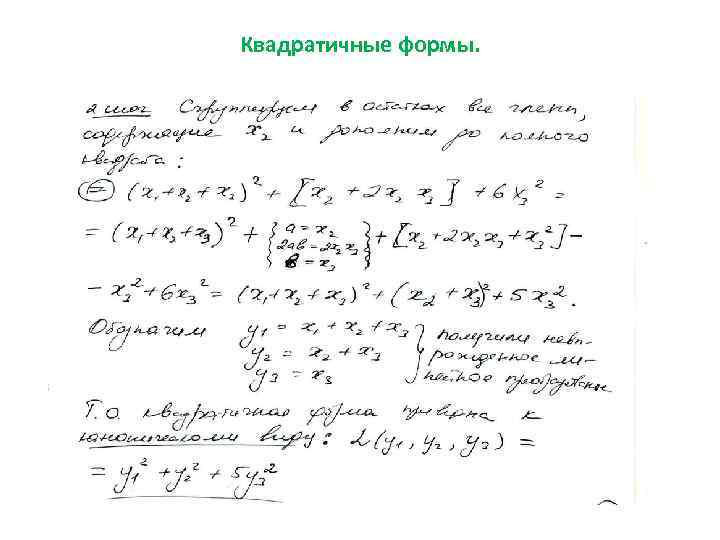 Квадратичные формы.
2 шаг Сгруппируем в остатках все члены,
содержащие x₂ и дополним до полного
квадрата:
⊜ (x₁+x₂+x₂)² + [x₂ + 2x₂ x₃] + 6x₃² =
= (x₁+x₂+x₃)² + {a = x₂ 2ab = 2x₂x₃ b = x₃} + [x₂ + 2x₂x₃ + x₃²] −
− x₃² + 6x₃² = (x₁+x₂+x₃)² + (x₂ + x₃)² + 5x₃².
Обозначим y₁ = x₁ + x₂ + x₃ } получили невы-
y₂ = x₂ + x₃ рожденное ли-
y₃ = x₃ нейное преобразование
Т.о. квадратичная форма приведена к
каноническому виду: L(y₁, y₂, y₃) =
= y₁² + y₂² + 5y₃²